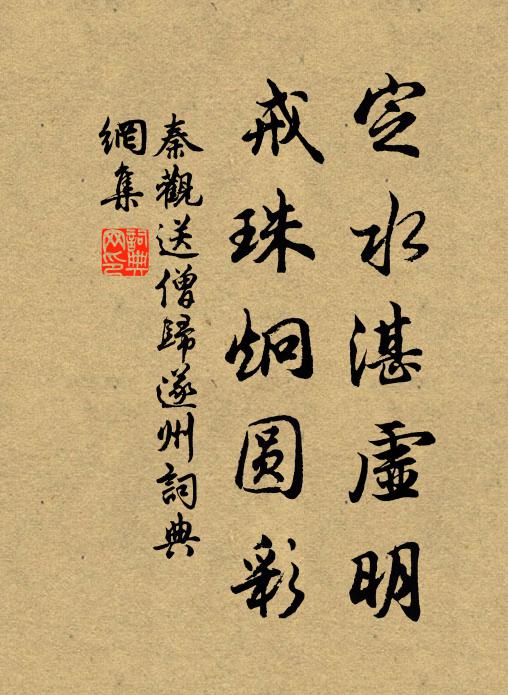 定水湛虛明
戒珠炯圆彩
秦觀送僧歸遂州詞典
網集
詞典
网印